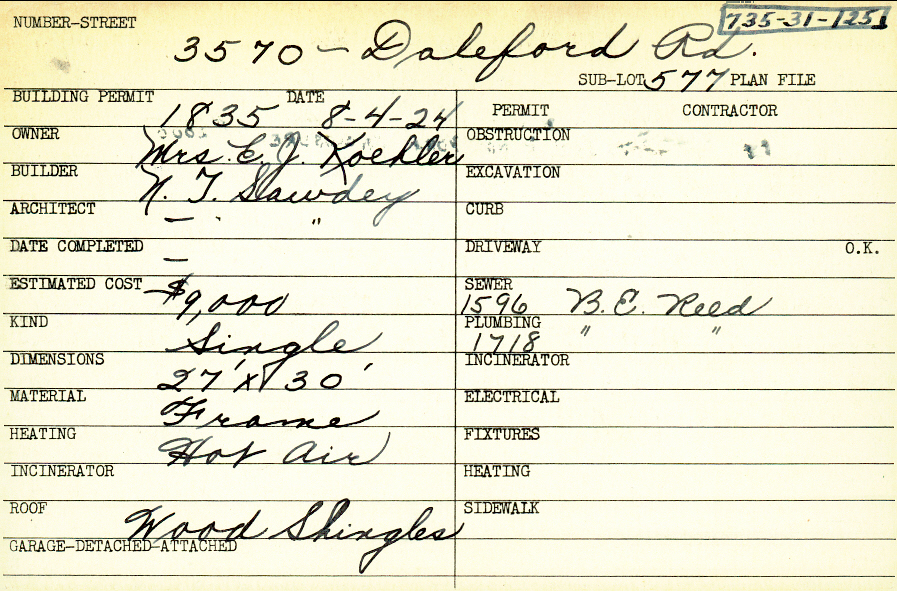 NUMBER-STREET
735-31-125
3570 - Daleford Rd.
SUB-LOT 577 PLAN FILE
BUILDING PERMIT 1835 DATE 8-4-24
PERMIT CONTRACTOR
OWNER Mrs. E. J. Koehler
OBSTRUCTION
BUILDER N. T. Sawdey
EXCAVATION
ARCHITECT — " "
CURB
DATE COMPLETED —
DRIVEWAY O.K.
ESTIMATED COST $9,000
SEWER 1596 B. E. Reed
KIND Single
PLUMBING 1718 " "
DIMENSIONS 27' x 30'
INCINERATOR
MATERIAL Frame
ELECTRICAL
HEATING Hot Air
FIXTURES
INCINERATOR
HEATING
ROOF Wood Shingles
SIDEWALK
GARAGE-DETACHED-ATTACHED